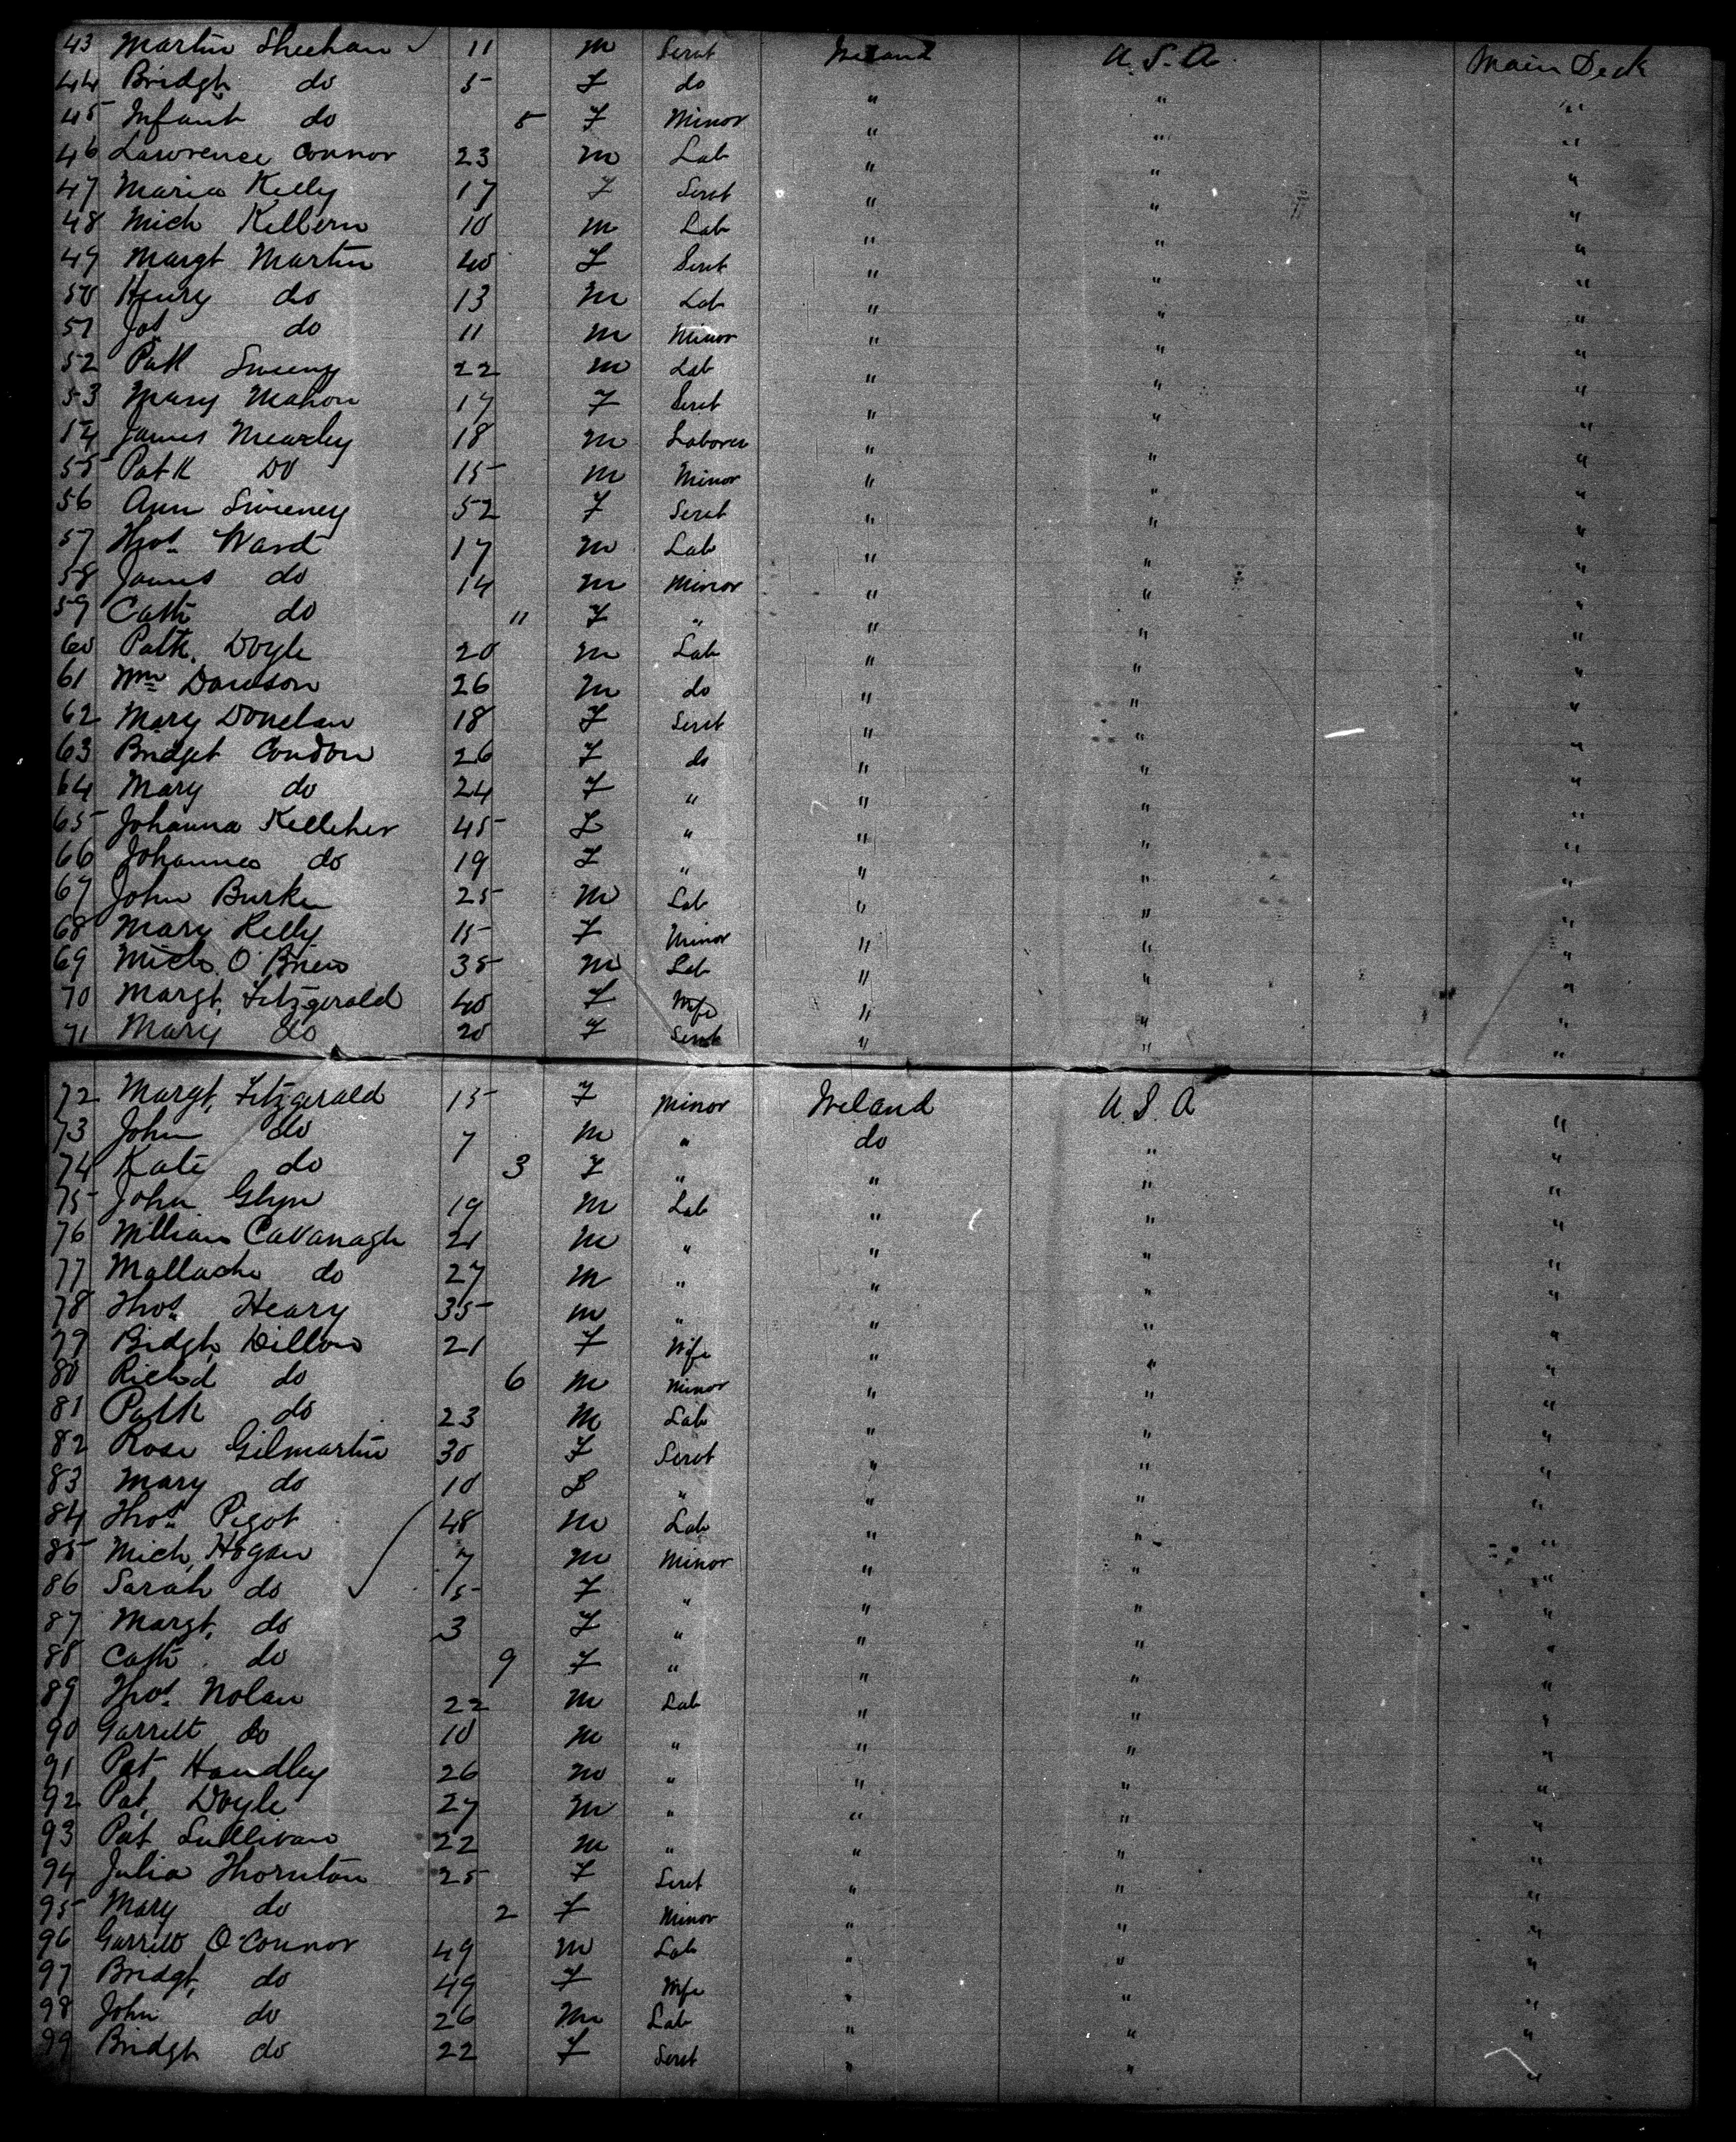 43 Martin Sheehan 11 M Servt Ireland U.S.A. Main Deck
44 Bridgt do 5 F do " " "
45 Infant do 5 F Minor " " "
46 Lawrence Connor 23 M Lab " " "
47 Maria Kelly 17 F Servt " " "
48 Mich Killern 10 M Lab " " "
49 Margt Martin 40 F Servt " " "
50 Henry do 13 M Lab " " "
51 Jos do 11 M Minor " " "
52 Patk Sweeny 22 M Lab " " "
53 Mary Mahon 17 F Servt " " "
54 James 18 M Laborer " " "
55 Patk Do 15 M Minor " " "
56 Ann Sweeney 52 F Servt " " "
57 Thos Ward 17 M Lab " " "
58 James do 14 M Minor " " "
59 Cath do 11 F " " " "
60 Patk. Doyle 20 M Lab " " "
61 Wm Dawson 26 M do " " "
62 Mary Donelan 18 F Servt " " "
63 Bridget Condon 26 F do " " "
64 Mary do 24 F " " " "
65 Johanna Kelleher 45 F " " " "
66 Johanna do 19 F " " " "
67 John Burke 25 M Lab " " "
68 Mary Kelly 15 F Minor " " "
69 Mich. O'Brien 35 M Lab " " "
70 Margt. Fitzgerald 40 F Wife " " "
71 Mary do 20 F Servt " " "
72 Margt. Fitzgerald 15 F Minor Ireland U.S.A "
73 John do 7 M " do " "
74 Kate do 3 F " " " "
75 John Glyn 19 M Lab " " "
76 William Cavanagh 21 M " " " "
77 Mallachi do 27 M " " " "
78 Thos. Heary 35 M " " " "
79 Bidgt. Dillon 21 F Wife " " "
80 Richd do 6 M Minor " " "
81 Patk do 23 M Lab " " "
82 Rose Gilmartin 30 F Servt " " "
83 Mary do 10 F " " " "
84 Thos. Pigot 48 M Lab " " "
85 Mich. Hogan 7 M Minor " " "
86 Sarah do 5 F " " " "
87 Margt. do 3 F " " " "
88 Cath. do 9 F " " " "
89 Thos. Nolan 22 M Lab " " "
90 Garrett do 10 M " " " "
91 Pat Handley 26 M " " " "
92 Pat. Doyle 27 M " " " "
93 Pat Sullivan 22 M " " " "
94 Julia Thornton 25 F Servt " " "
95 Mary do 2 F Minor " " "
96 Garrett O'Connor 49 M Lab " " "
97 Bridgt. do 49 F Wife " " "
98 John do 26 M Lab " " "
99 Bridgt do 22 F Servt " " "